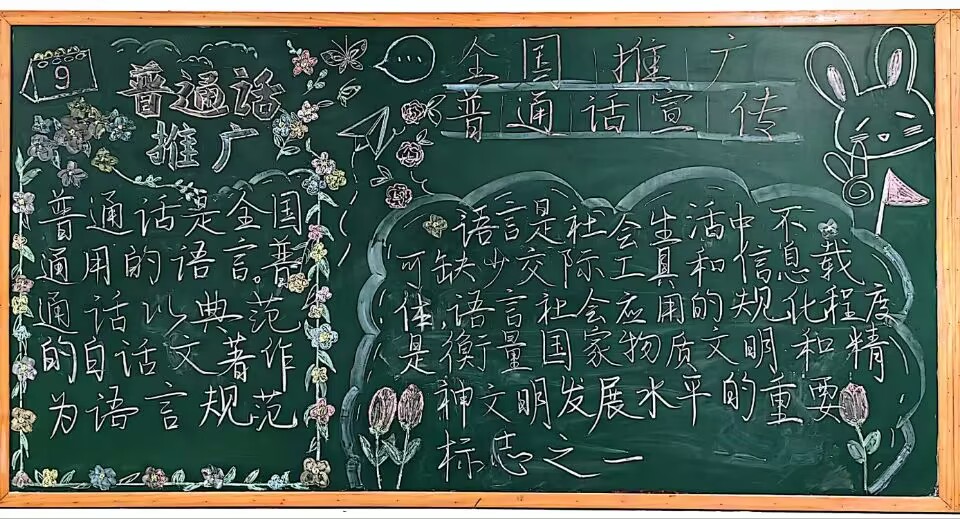 9
普通话
推广
普通话是全国
通用的语言。普
通话以典范
的白话文著作
为语言规范
全国推广
普通话宣传
语言是社会生活中不
可缺少交际工具和信息载
体,语言社会应用的规化程度
是衡量国家物质文明和精
神文明发展水平的重要
标志之一